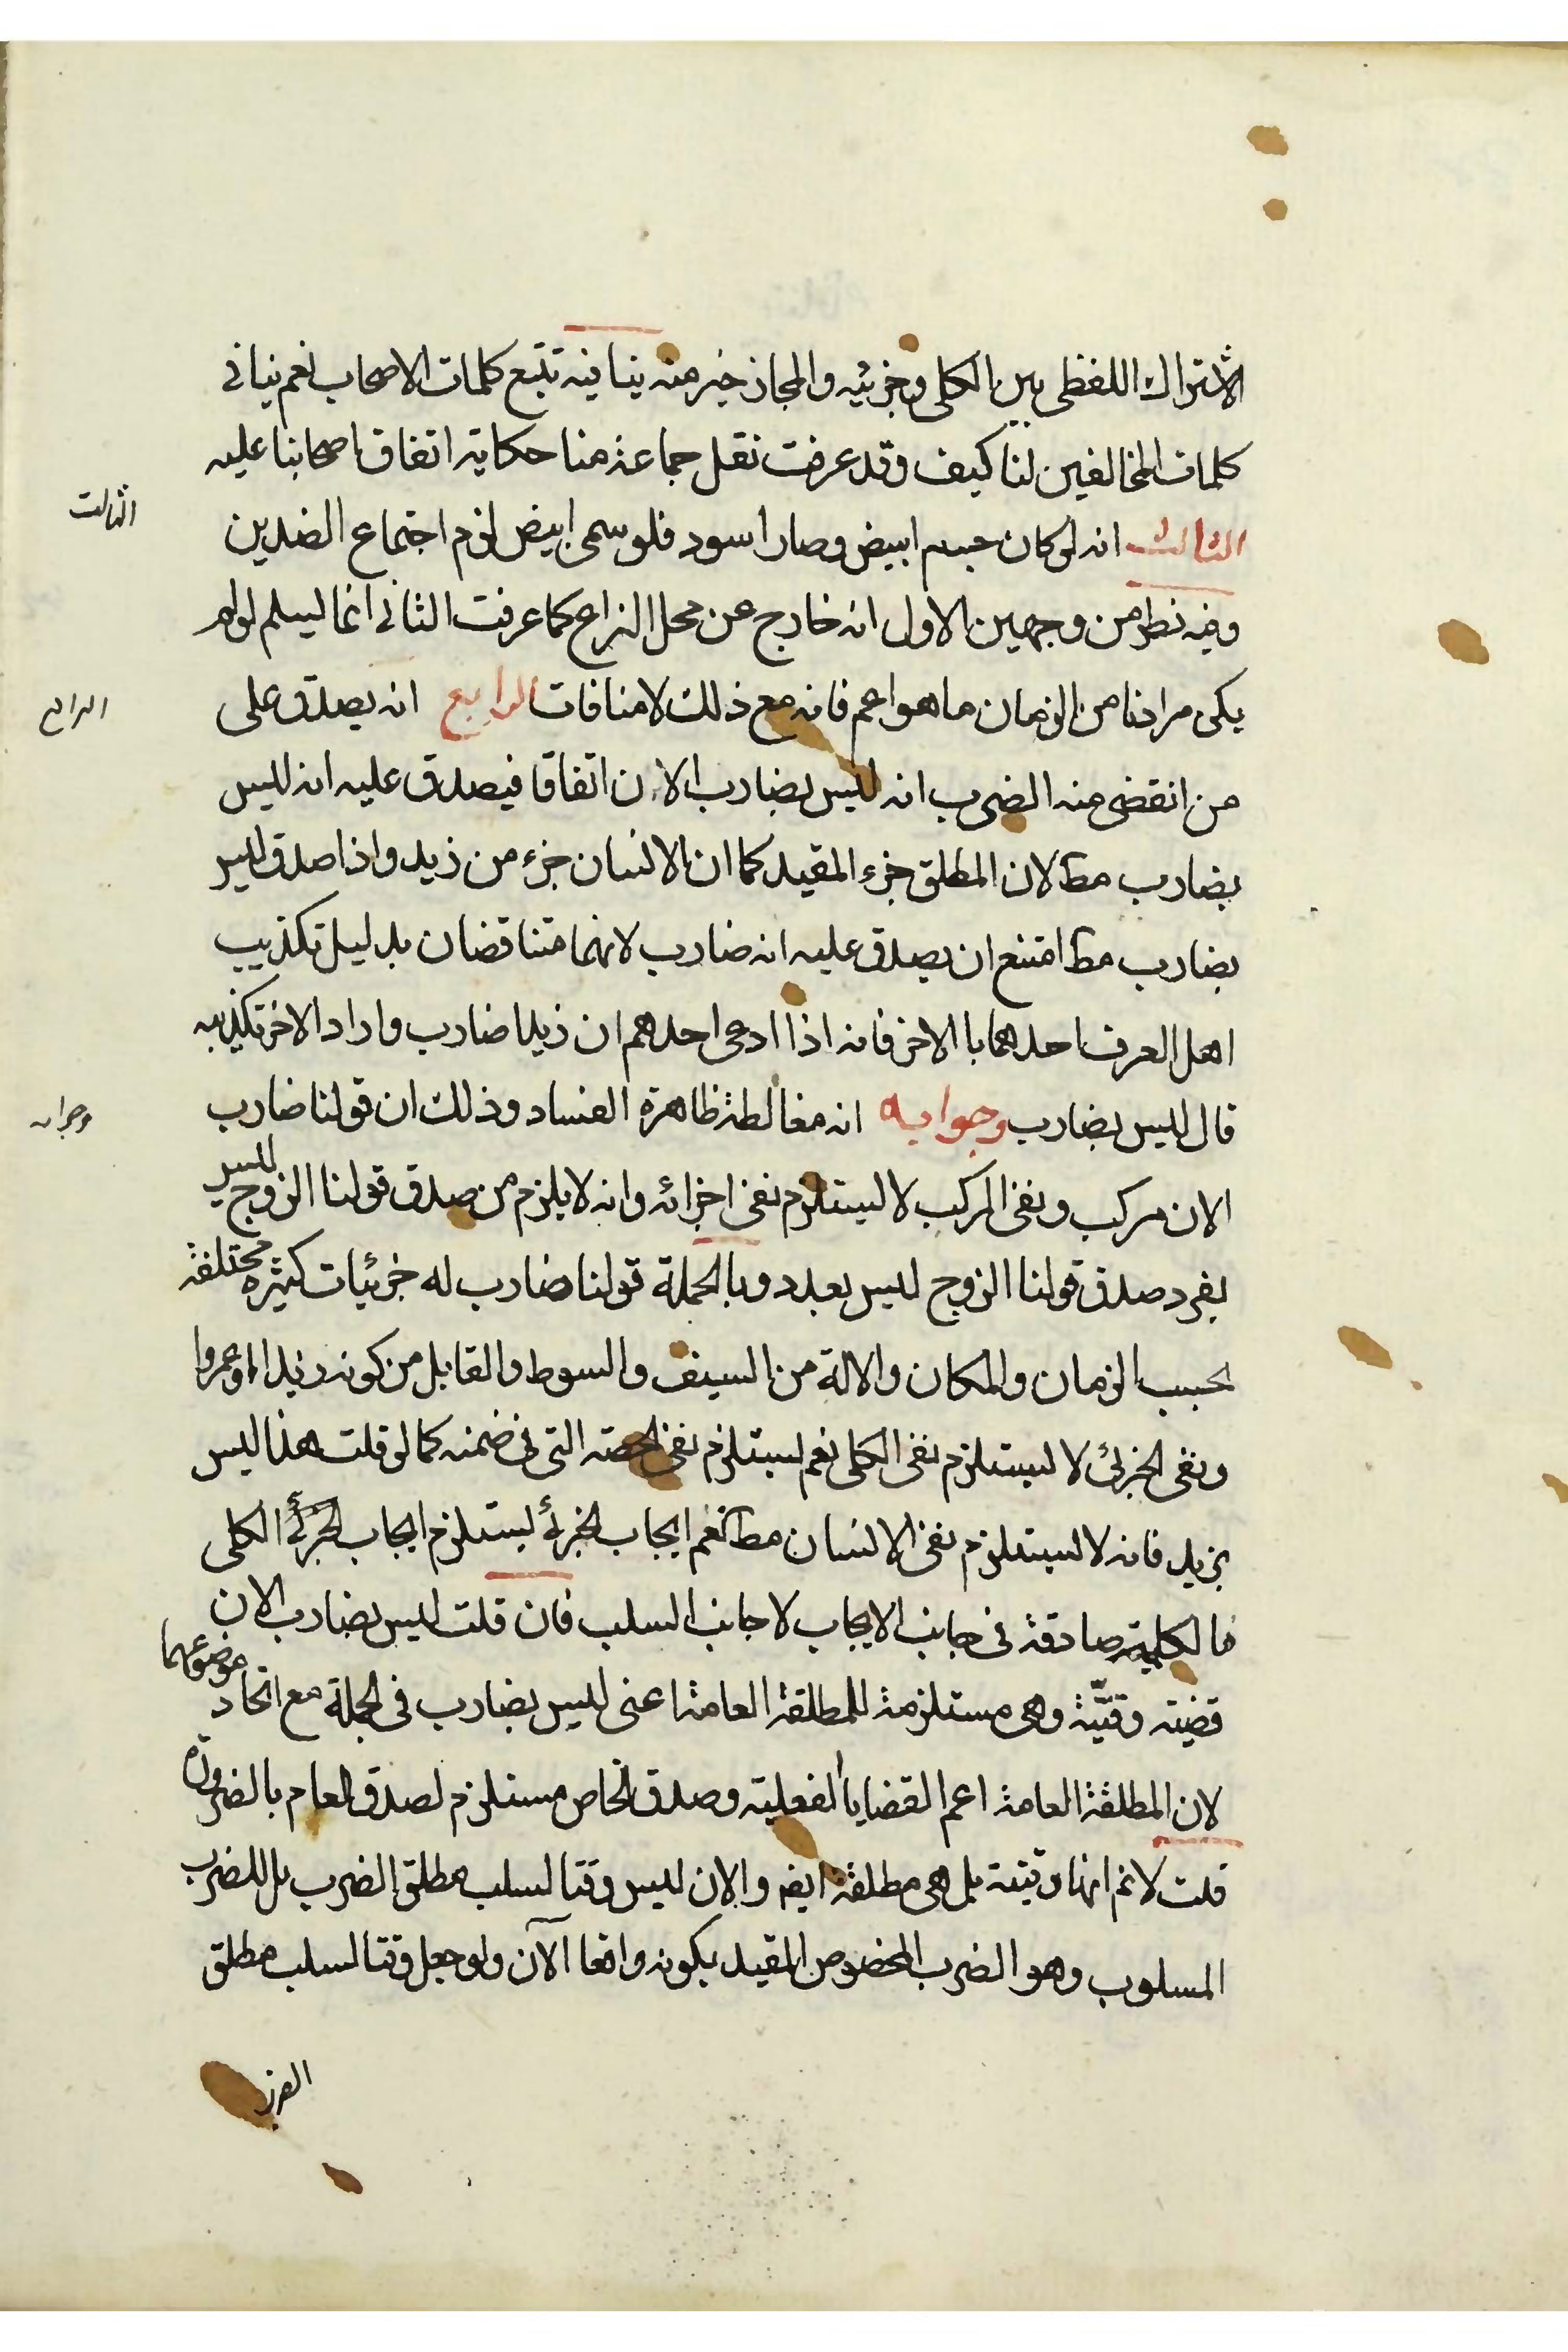 الاشتراك اللفظى بين الكلى وجزئيه والمجاز خير منه ينافيه تتبع كلمات الاصحاب نعم ينافى
كلمات المخالفين لنا كيف وقد عرفت نقل جماعة منا حكاية اتفاق اصحابنا عليه
الثالث انه لو كان جسم ابيض وصار اسود فلو سمى ابيض لزم اجتماع الضدين
الثالث
وفيه نظر من وجهين الاول انه خارج عن محل النزاع كما عرفت الثانى انما ليسلم لو لم
يكن مرادنا من الزمان ما هو اعم فانه مع ذلك لا منافات الرابع انه يصدق على
الرابع
من انقضى منه الضرب انه ليس بضارب الان اتفاقا فيصدق عليه انه ليس
بضارب مط لان المطلق جزء المقيد كما ان الانسان جزء من زيد واذا صدق ليس
بضارب مط امتنع ان يصدق عليه انه ضارب لانهما متناقضان بدليل تكذيب
اهل العرف احدهما با الاخر فانه اذا ادعى احدهم ان زيدا ضارب واراد الاخر تكذيبه
قال ليس بضارب وجوابه انه مغالطة ظاهرة الفساد وذلك ان قولنا ضارب
وجوابه
الان مركب ونفى المركب لا ليستلزم نفى اجزائه وانه لا يلزم من صدق قولنا الزوج ليس
بفرد صدق قولنا الزوج ليس بعدد وبالجملة قولنا ضارب له جزئيات كثيره مختلفة
بحسب الزمان والمكان والالة من السيف والسوط والقابل من كونه زيدا او عمروا
ونفى الجزئى لا ليستلزم نفى الكلى نعم ليستلزم نفى الحصته التى فى ضمنه كما لو قلت هذا ليس
بزيد فانه لا ليستلزم نفى الانسان مط نعم ايجاب الجزئ ليستلزم ايجاب الجزئ الكلى
فالكلية صادقة فى جانب الايجاب لا جانب السلب فان قلت ليس بضارب الان
قضيته وقتيّة وهى مستلزمة للمطلقة العامة اعنى ليس بضارب فى الجملة مع اتحاد موضوعهما
لان المطلقة العامة اعم القضايا الفعلية وصدق الخاص مستلزم لصدق العام بالضرورة
قلت لا نم انها وقتية بل هى مطلقة ايضم والان ليس وقتا لسلب مطلق الضرب بل للضرب
المسلوب وهو الضرب المخصوص المقيد بكونه واقعا الآن ولو جعل وقتا لسلب مطلق